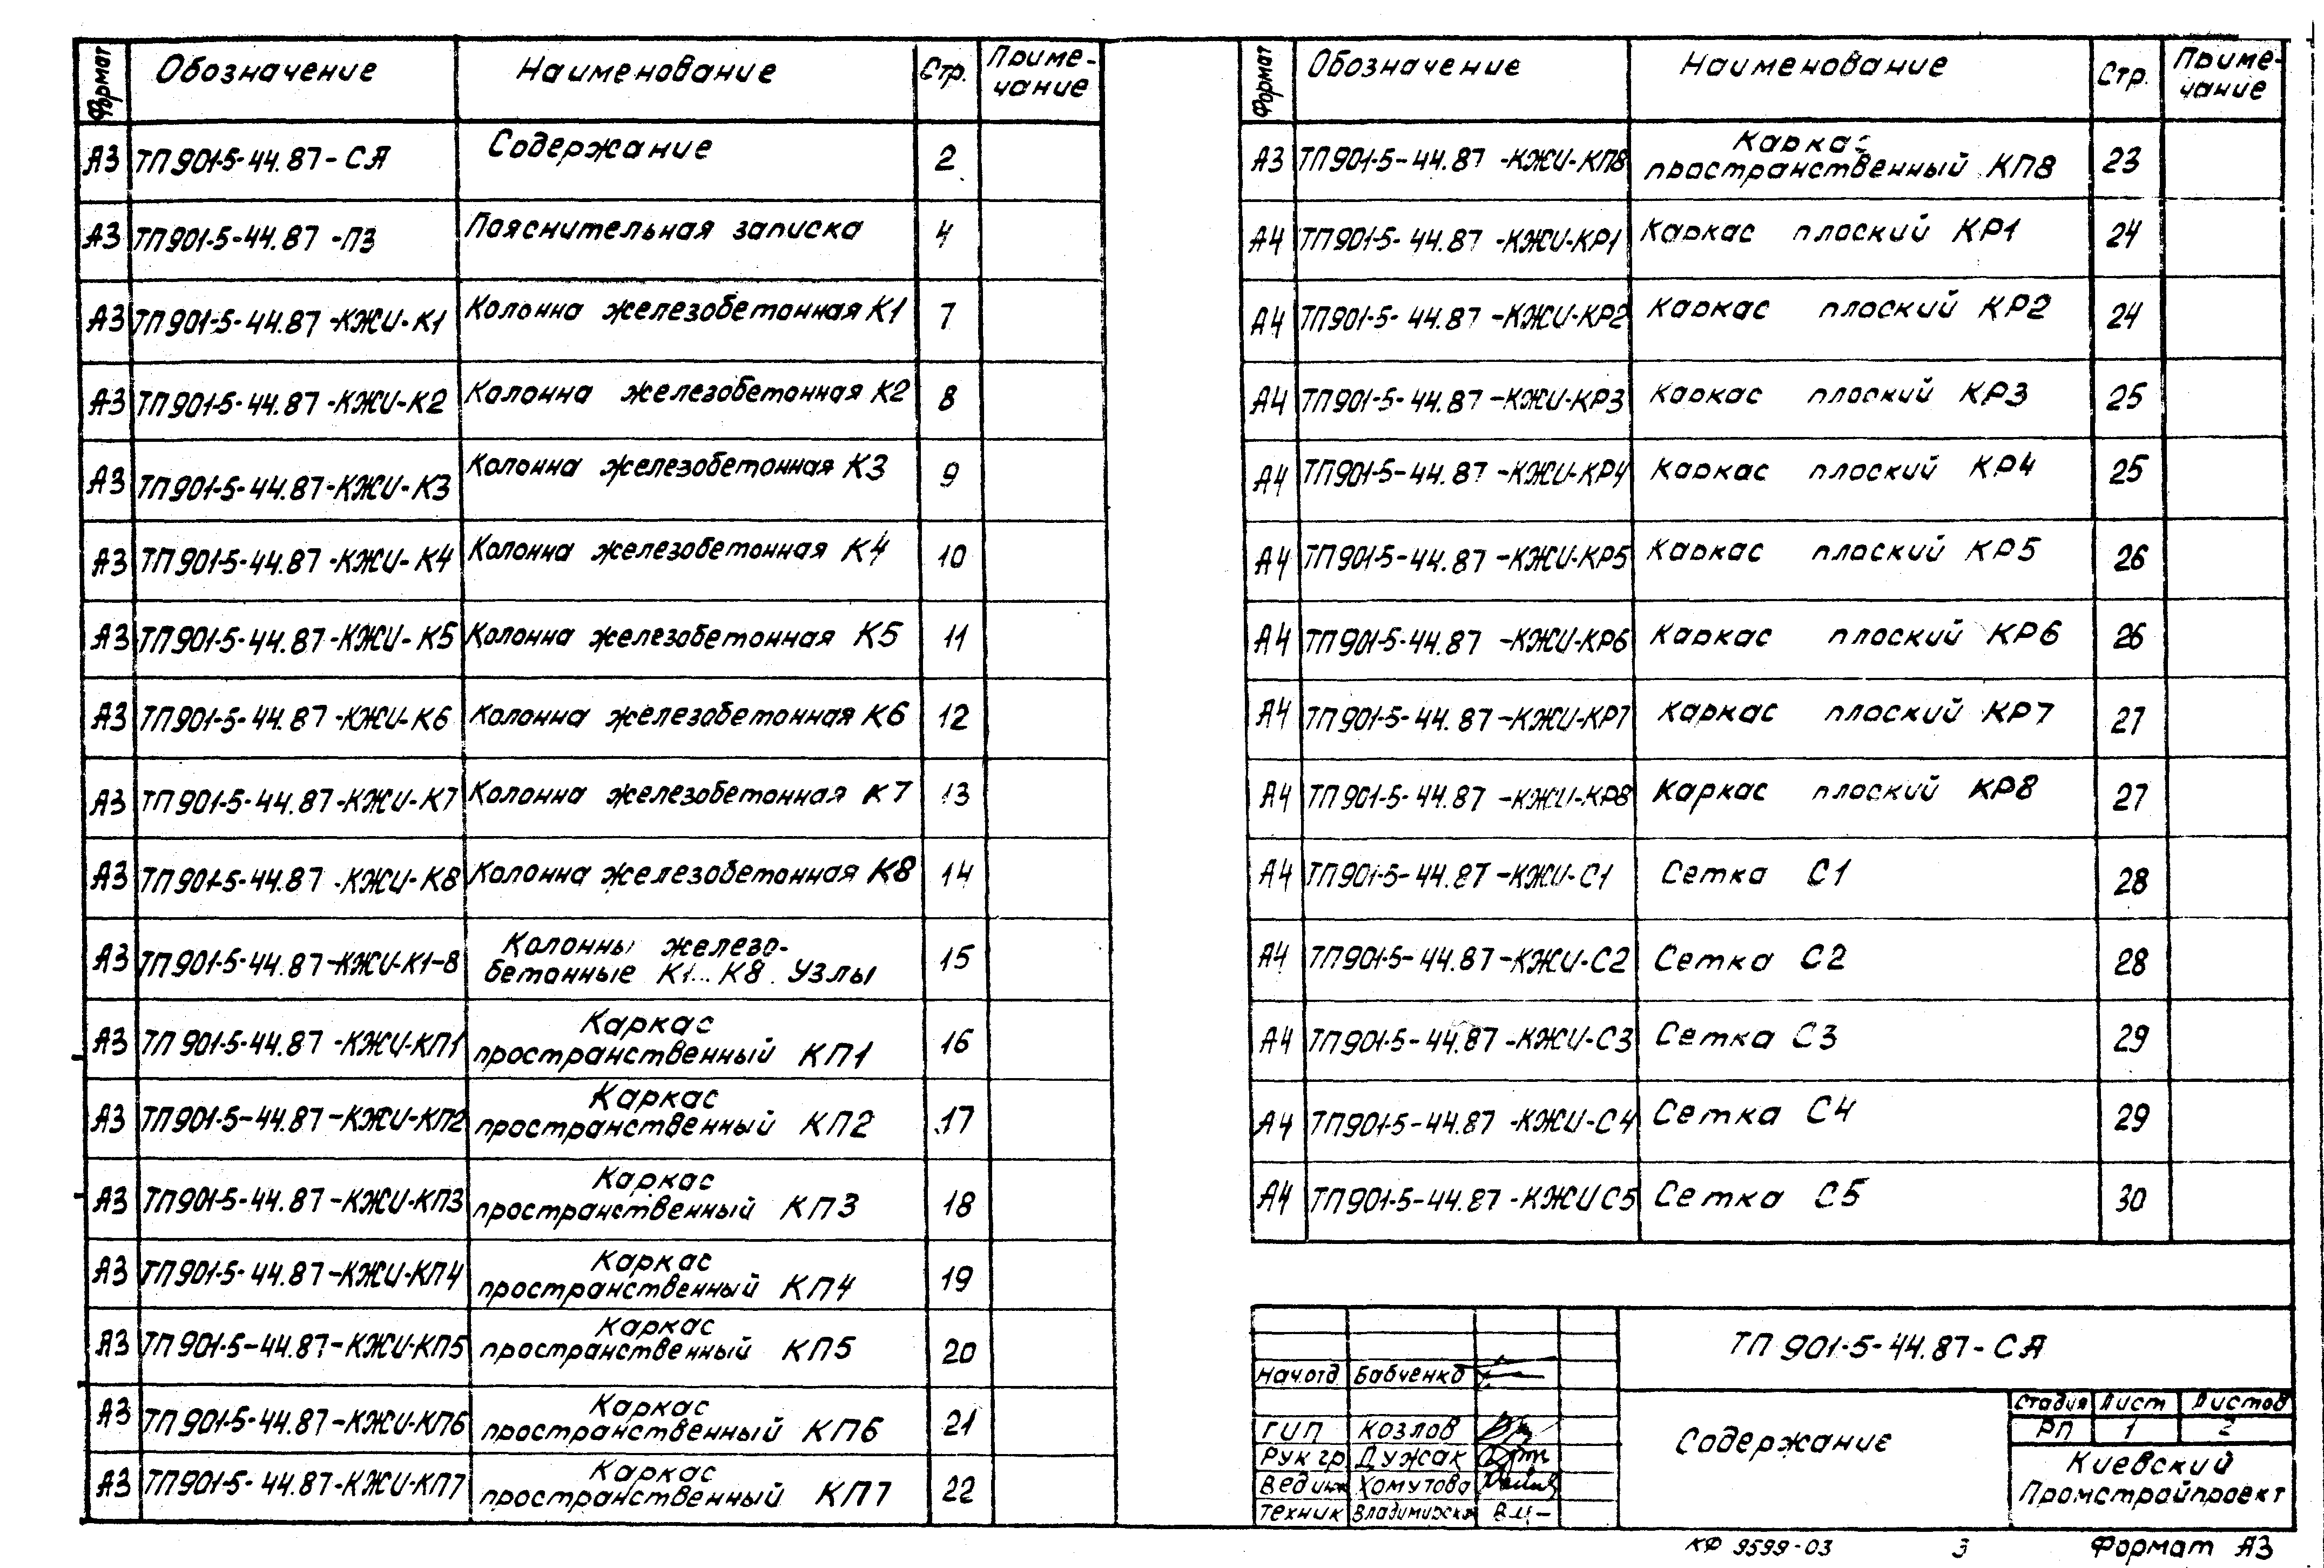 Формат Обозначение Наименование Стр. Приме-
чание
А3 ТП 901-5-44.87-СЯ Содержание 2
А3 ТП 901-5-44.87-ПЗ Пояснительная записка 4
А3 ТП 901-5-44.87-КЖИ-К1 Колонна железобетонная К1 7
А3 ТП 901-5-44.87-КЖИ-К2 Колонна железобетонная К2 8
А3 ТП 901-5-44.87-КЖИ-К3 Колонна железобетонная К3 9
А3 ТП 901-5-44.87-КЖИ-К4 Колонна железобетонная К4 10
А3 ТП 901-5-44.87-КЖИ-К5 Колонна железобетонная К5 11
А3 ТП 901-5-44.87-КЖИ-К6 Колонна железобетонная К6 12
А3 ТП 901-5-44.87-КЖИ-К7 Колонна железобетонная К7 13
А3 ТП 901-5-44.87-КЖИ-К8 Колонна железобетонная К8 14
А3 ТП 901-5-44.87-КЖИ-К1-8 Колонны железо-
бетонные К1...К8. Узлы 15
А3 ТП 901-5-44.87-КЖИ-КП1 Каркас
пространственный КП1 16
А3 ТП 901-5-44.87-КЖИ-КП2 Каркас
пространственный КП2 17
А3 ТП 901-5-44.87-КЖИ-КП3 Каркас
пространственный КП3 18
А3 ТП 901-5-44.87-КЖИ-КП4 Каркас
пространственный КП4 19
А3 ТП 901-5-44.87-КЖИ-КП5 Каркас
пространственный КП5 20
А3 ТП 901-5-44.87-КЖИ-КП6 Каркас
пространственный КП6 21
А3 ТП 901-5-44.87-КЖИ-КП7 Каркас
пространственный КП7 22
Формат Обозначение Наименование Стр. Приме-
чание
А3 ТП 901-5-44.87-КЖИ-КП8 Каркас
пространственный КП8 23
А4 ТП 901-5-44.87-КЖИ-КР1 Каркас плоский КР1 24
А4 ТП 901-5-44.87-КЖИ-КР2 Каркас плоский КР2 24
А4 ТП 901-5-44.87-КЖИ-КР3 Каркас плоский КР3 25
А4 ТП 901-5-44.87-КЖИ-КР4 Каркас плоский КР4 25
А4 ТП 901-5-44.87-КЖИ-КР5 Каркас плоский КР5 26
А4 ТП 901-5-44.87-КЖИ-КР6 Каркас плоский КР6 26
А4 ТП 901-5-44.87-КЖИ-КР7 Каркас плоский КР7 27
А4 ТП 901-5-44.87-КЖИ-КР8 Каркас плоский КР8 27
А4 ТП 901-5-44.87-КЖИ-С1 Сетка С1 28
А4 ТП 901-5-44.87-КЖИ-С2 Сетка С2 28
А4 ТП 901-5-44.87-КЖИ-С3 Сетка С3 29
А4 ТП 901-5-44.87-КЖИ-С4 Сетка С4 29
А4 ТП 901-5-44.87-КЖИ С5 Сетка С5 30
ТП 901-5-44.87-СЯ
Нач.отд. Бабченко
ГИП Козлов
Рук гр Дужак
Вед инж Хомутова
Техник
Содержание
Стадия Лист Листов
РП 1 2
Киевский
Промстройпроект
КФ 9599-03 3 Формат А3